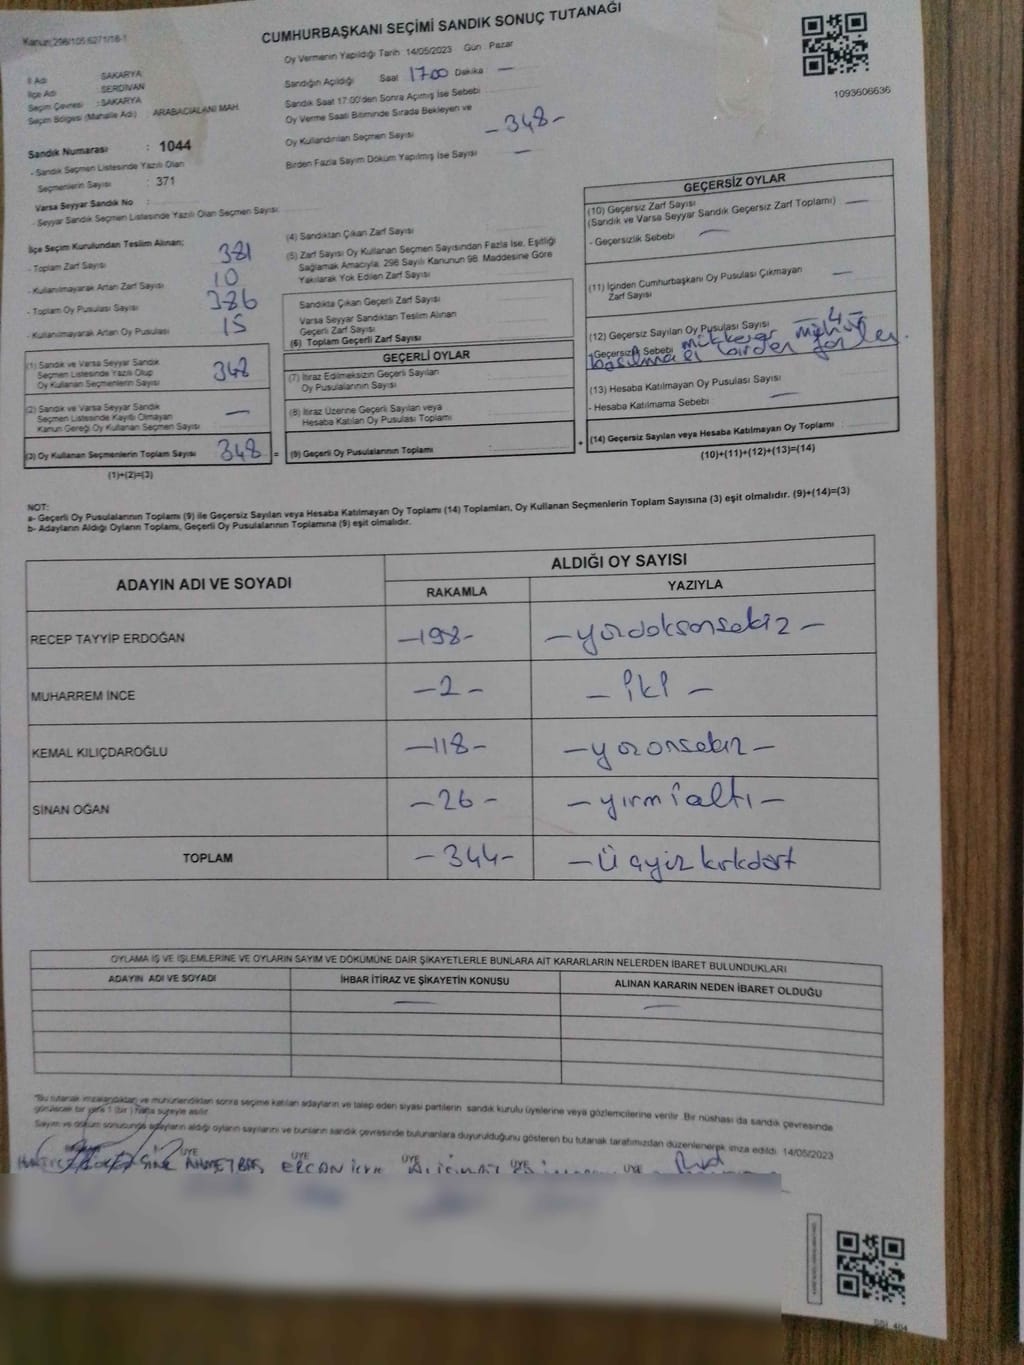 Kanun:298/105,6271/18-1
CUMHURBAŞKANI SEÇİMİ SANDIK SONUÇ TUTANAĞI
Oy Vermenin Yapıldığı Tarih 14/05/2023 Gün : Pazar
İl Adı : SAKARYA
İlçe Adı : SERDİVAN
Seçim Çevresi : SAKARYA
Seçim Bölgesi (Mahalle Adı) : ARABACIALANI MAH.
Sandık Numarası : 1044
- Sandık Seçmen Listesinde Yazılı Olan
Seçmenlerin Sayısı : 371
Varsa Seyyar Sandık No :
- Seyyar Sandık Seçmen Listesinde Yazılı Olan Seçmen Sayısı:
Sandığın Açıldığı Saat 17:00 Dakika —
Sandık Saat 17:00'den Sonra Açmış İse Sebebi
Oy Verme Saati Bitiminde Sırada Bekleyen ve
Oy Kullandırılan Seçmen Sayısı - 348 -
Birden Fazla Sayım Döküm Yapılmış İse Sayısı —
1093606636
İlçe Seçim Kurulundan Teslim Alınan;
- Toplam Zarf Sayısı 381
- Kullanılmayarak Artan Zarf Sayısı 10
- Toplam Oy Pusulası Sayısı 386
- Kullanılmayarak Artan Oy Pusulası 15
(1) Sandık ve Varsa Seyyar Sandık
Seçmen Listesinde Yazılı Olup
Oy Kullanan Seçmenlerin Sayısı 348
(2) Sandık ve Varsa Seyyar Sandık
Seçmen Listesinde Kayıtlı Olmayan
Kanun Gereği Oy Kullanan Seçmen Sayısı —
(3) Oy Kullanan Seçmenlerin Toplam Sayısı 348 =
(1)+(2)=(3)
(4) Sandıktan Çıkan Zarf Sayısı
(5) Zarf Sayısı Oy Kullanan Seçmen Sayısından Fazla İse, Eşitliği
Sağlamak Amacıyla, 298 Sayılı Kanunun 98. Maddesine Göre
Yakılarak Yok Edilen Zarf Sayısı
Sandıkta Çıkan Geçerli Zarf Sayısı
Varsa Seyyar Sandıktan Teslim Alınan
Geçerli Zarf Sayısı
(6) Toplam Geçerli Zarf Sayısı
GEÇERLİ OYLAR
(7) İtiraz Edilmeksizin Geçerli Sayılan
Oy Pusulalarının Sayısı
(8) İtiraz Üzerine Geçerli Sayılan veya
Hesaba Katılan Oy Pusulası Toplamı
(9) Geçerli Oy Pusulalarının Toplamı +
GEÇERSİZ OYLAR
(10) Geçersiz Zarf Sayısı
(Sandık ve Varsa Seyyar Sandık Geçersiz Zarf Toplamı) —
- Geçersizlik Sebebi —
(11) İçinden Cumhurbaşkanı Oy Pusulası Çıkmayan
Zarf Sayısı —
(12) Geçersiz Sayılan Oy Pusulası Sayısı - 4 -
- Geçersizlik Sebebi mükerrer mühür
basılması birden
(13) Hesaba Katılmayan Oy Pusulası Sayısı
- Hesaba Katılmama Sebebi —
(14) Geçersiz Sayılan veya Hesaba Katılmayan Oy Toplamı :
(10)+(11)+(12)+(13)=(14)
NOT:
a- Geçerli Oy Pusulalarının Toplamı (9) ile Geçersiz Sayılan veya Hesaba Katılmayan Oy Toplamı (14) Toplamları, Oy Kullanan Seçmenlerin Toplam Sayısına (3) eşit olmalıdır. (9)+(14)=(3)
b- Adayların Aldığı Oyların Toplamı, Geçerli Oy Pusulalarının Toplamına (9) eşit olmalıdır.
ADAYIN ADI VE SOYADI ALDIĞI OY SAYISI
RAKAMLA YAZIYLA
RECEP TAYYİP ERDOĞAN - 198 - - yüzdoksansekiz -
MUHARREM İNCE - 2 - - İki -
KEMAL KILIÇDAROĞLU - 118 - - yüzonsekiz -
SİNAN OĞAN - 26 - - yirmialtı -
TOPLAM - 344 - - Üçyüzkırkdört
OYLAMA İŞ VE İŞLEMLERİNE VE OYLARIN SAYIM VE DÖKÜMÜNE DAİR ŞİKAYETLERLE BUNLARA AİT KARARLARIN NELERDEN İBARET BULUNDUKLARI
ADAYIN ADI VE SOYADI İHBAR İTİRAZ VE ŞİKAYETİN KONUSU ALINAN KARARIN NEDEN İBARET OLDUĞU
— —
"Bu tutanak imzalandıktan ve mühürlendikten sonra seçime katılan adayların ve talep eden siyasi partilerin sandık kurulu üyelerine veya gözlemcilerine verilir. Bir nüshası da sandık çevresinde
görülecek bir yere 1 (bir) hafta süreyle asılır.
Sayım ve döküm sonucunda adayların aldığı oyların sayılarını ve bunların sandık çevresinde bulunanlara duyurulduğunu gösteren bu tutanak tarafımızdan düzenlenerek imza edildi. 14/05/2023
ÜYE ÜYE ÜYE ÜYE ÜYE
AHMET BAŞ ERCAN